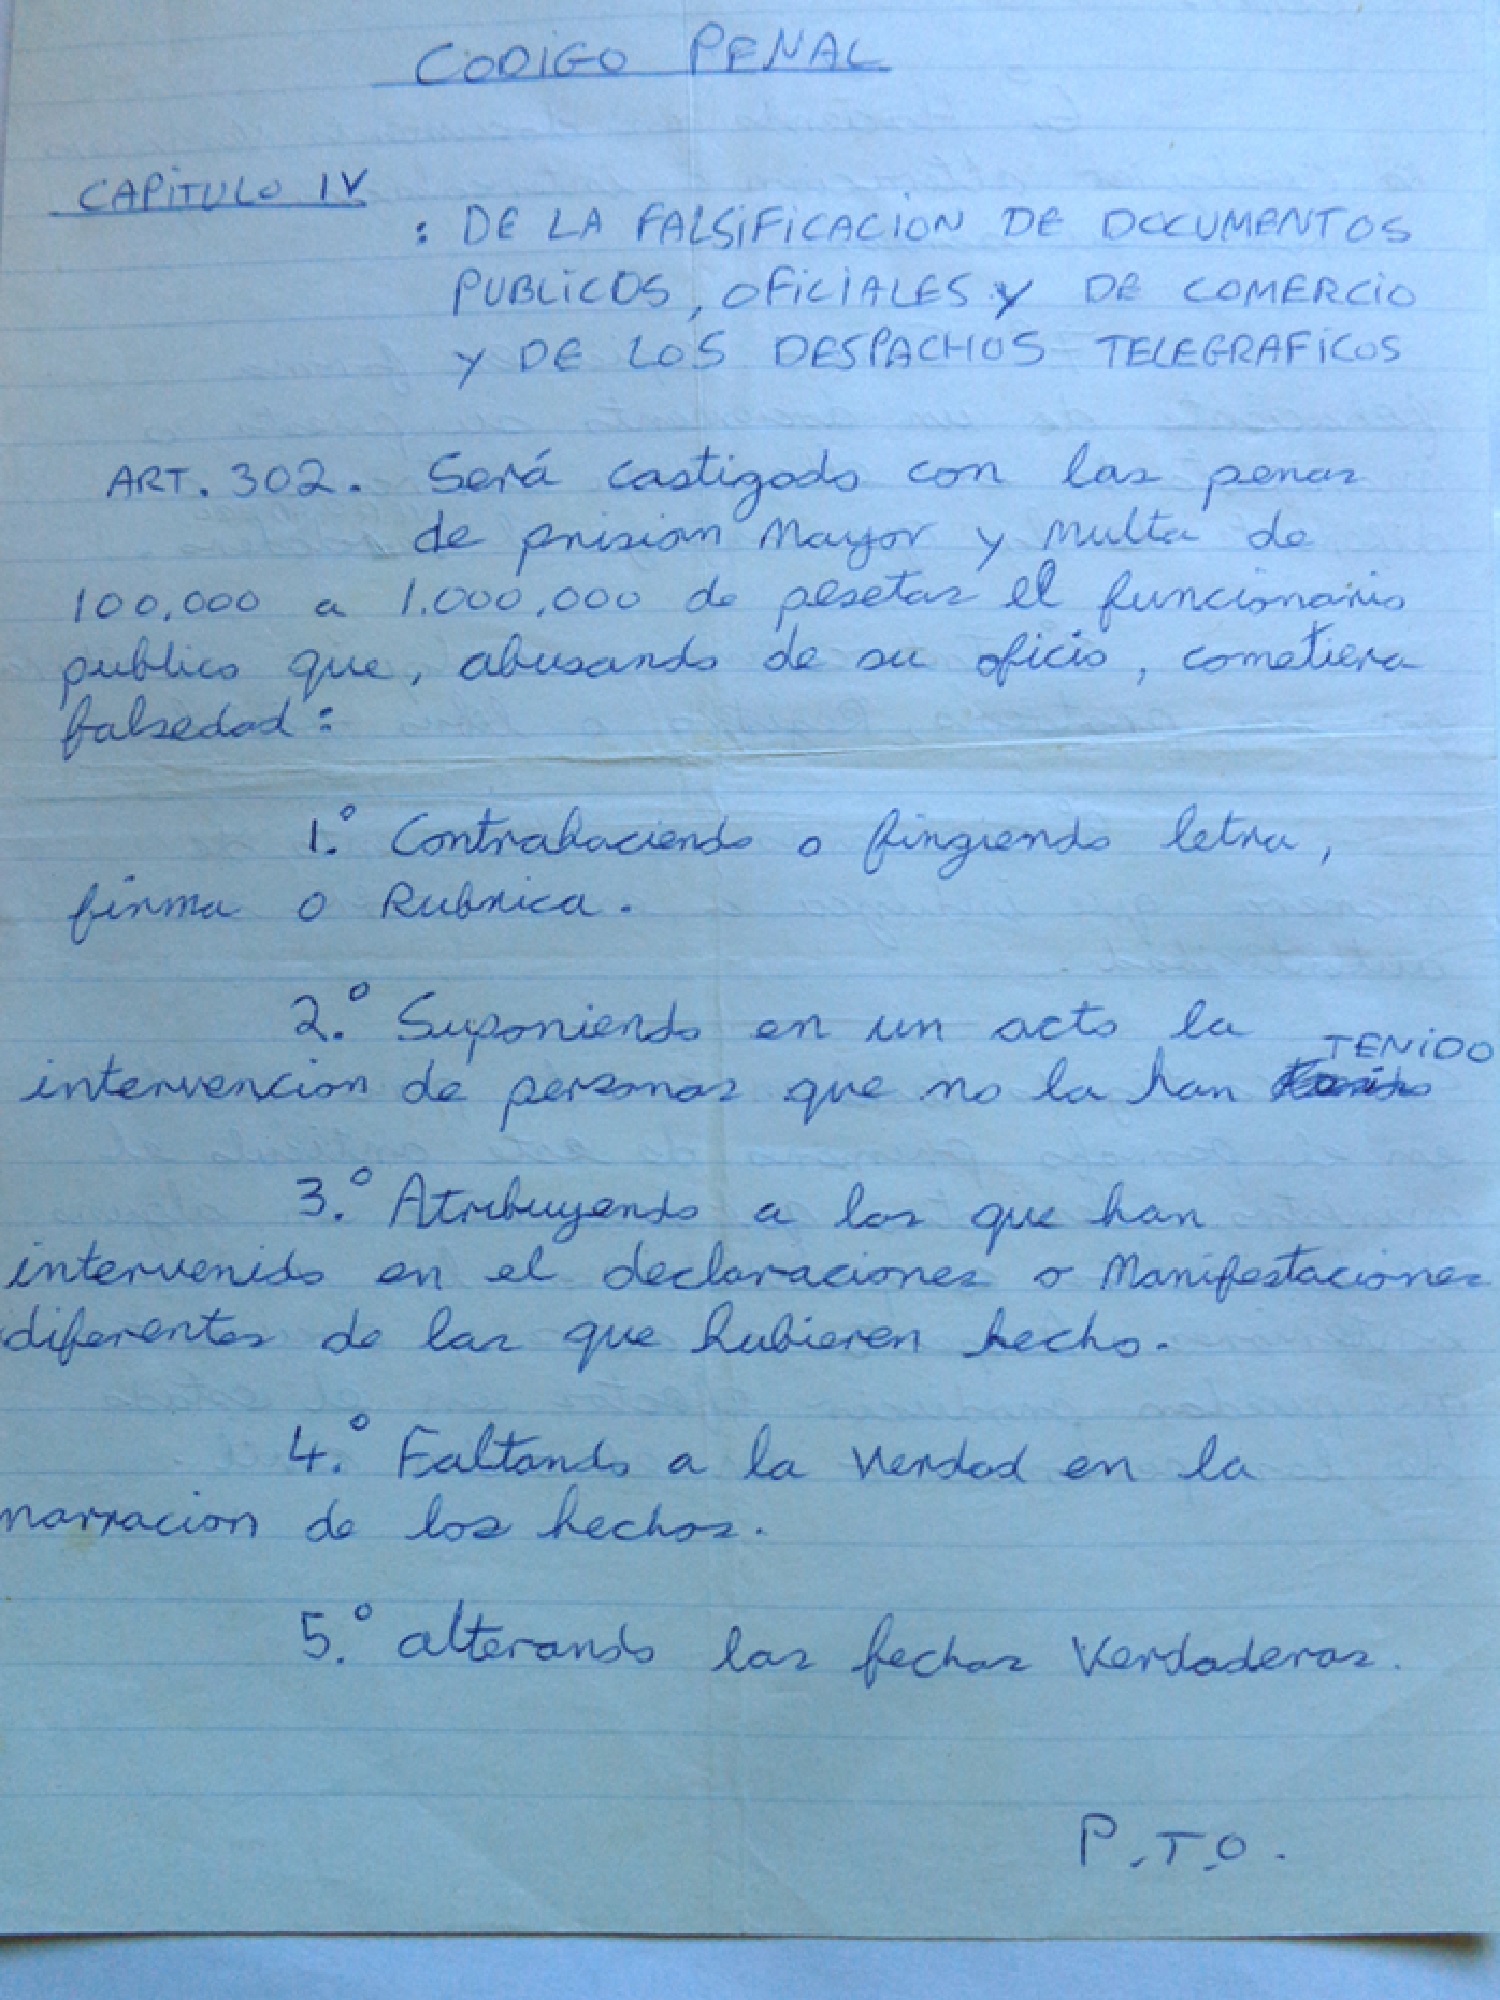 CODIGO PENAL
CAPITULO IV
: DE LA FALSIFICACION DE DOCUMENTOS
PUBLICOS, OFICIALES Y DE COMERCIO
Y DE LOS DESPACHOS TELEGRAFICOS
ART. 302. Será castigado con las penas
de prision Mayor y Multa de
100.000 a 1.000.000 de pesetas el funcionario
publico que, abusando de su oficio, cometiera
falsedad:
1.º Contrahaciendo o fingiendo letra,
firma o Rubrica.
2.º Suponiendo en un acto la
intervencion de personas que no la han TENIDO
3.º Atribuyendo a las que han
intervenido en el declaraciones o Manifestaciones
diferentes de las que hubieren hecho.
4.º Faltando a la verdad en la
narracion de los hechos.
5.º alterando las fechas Verdaderas.
P.T.O.